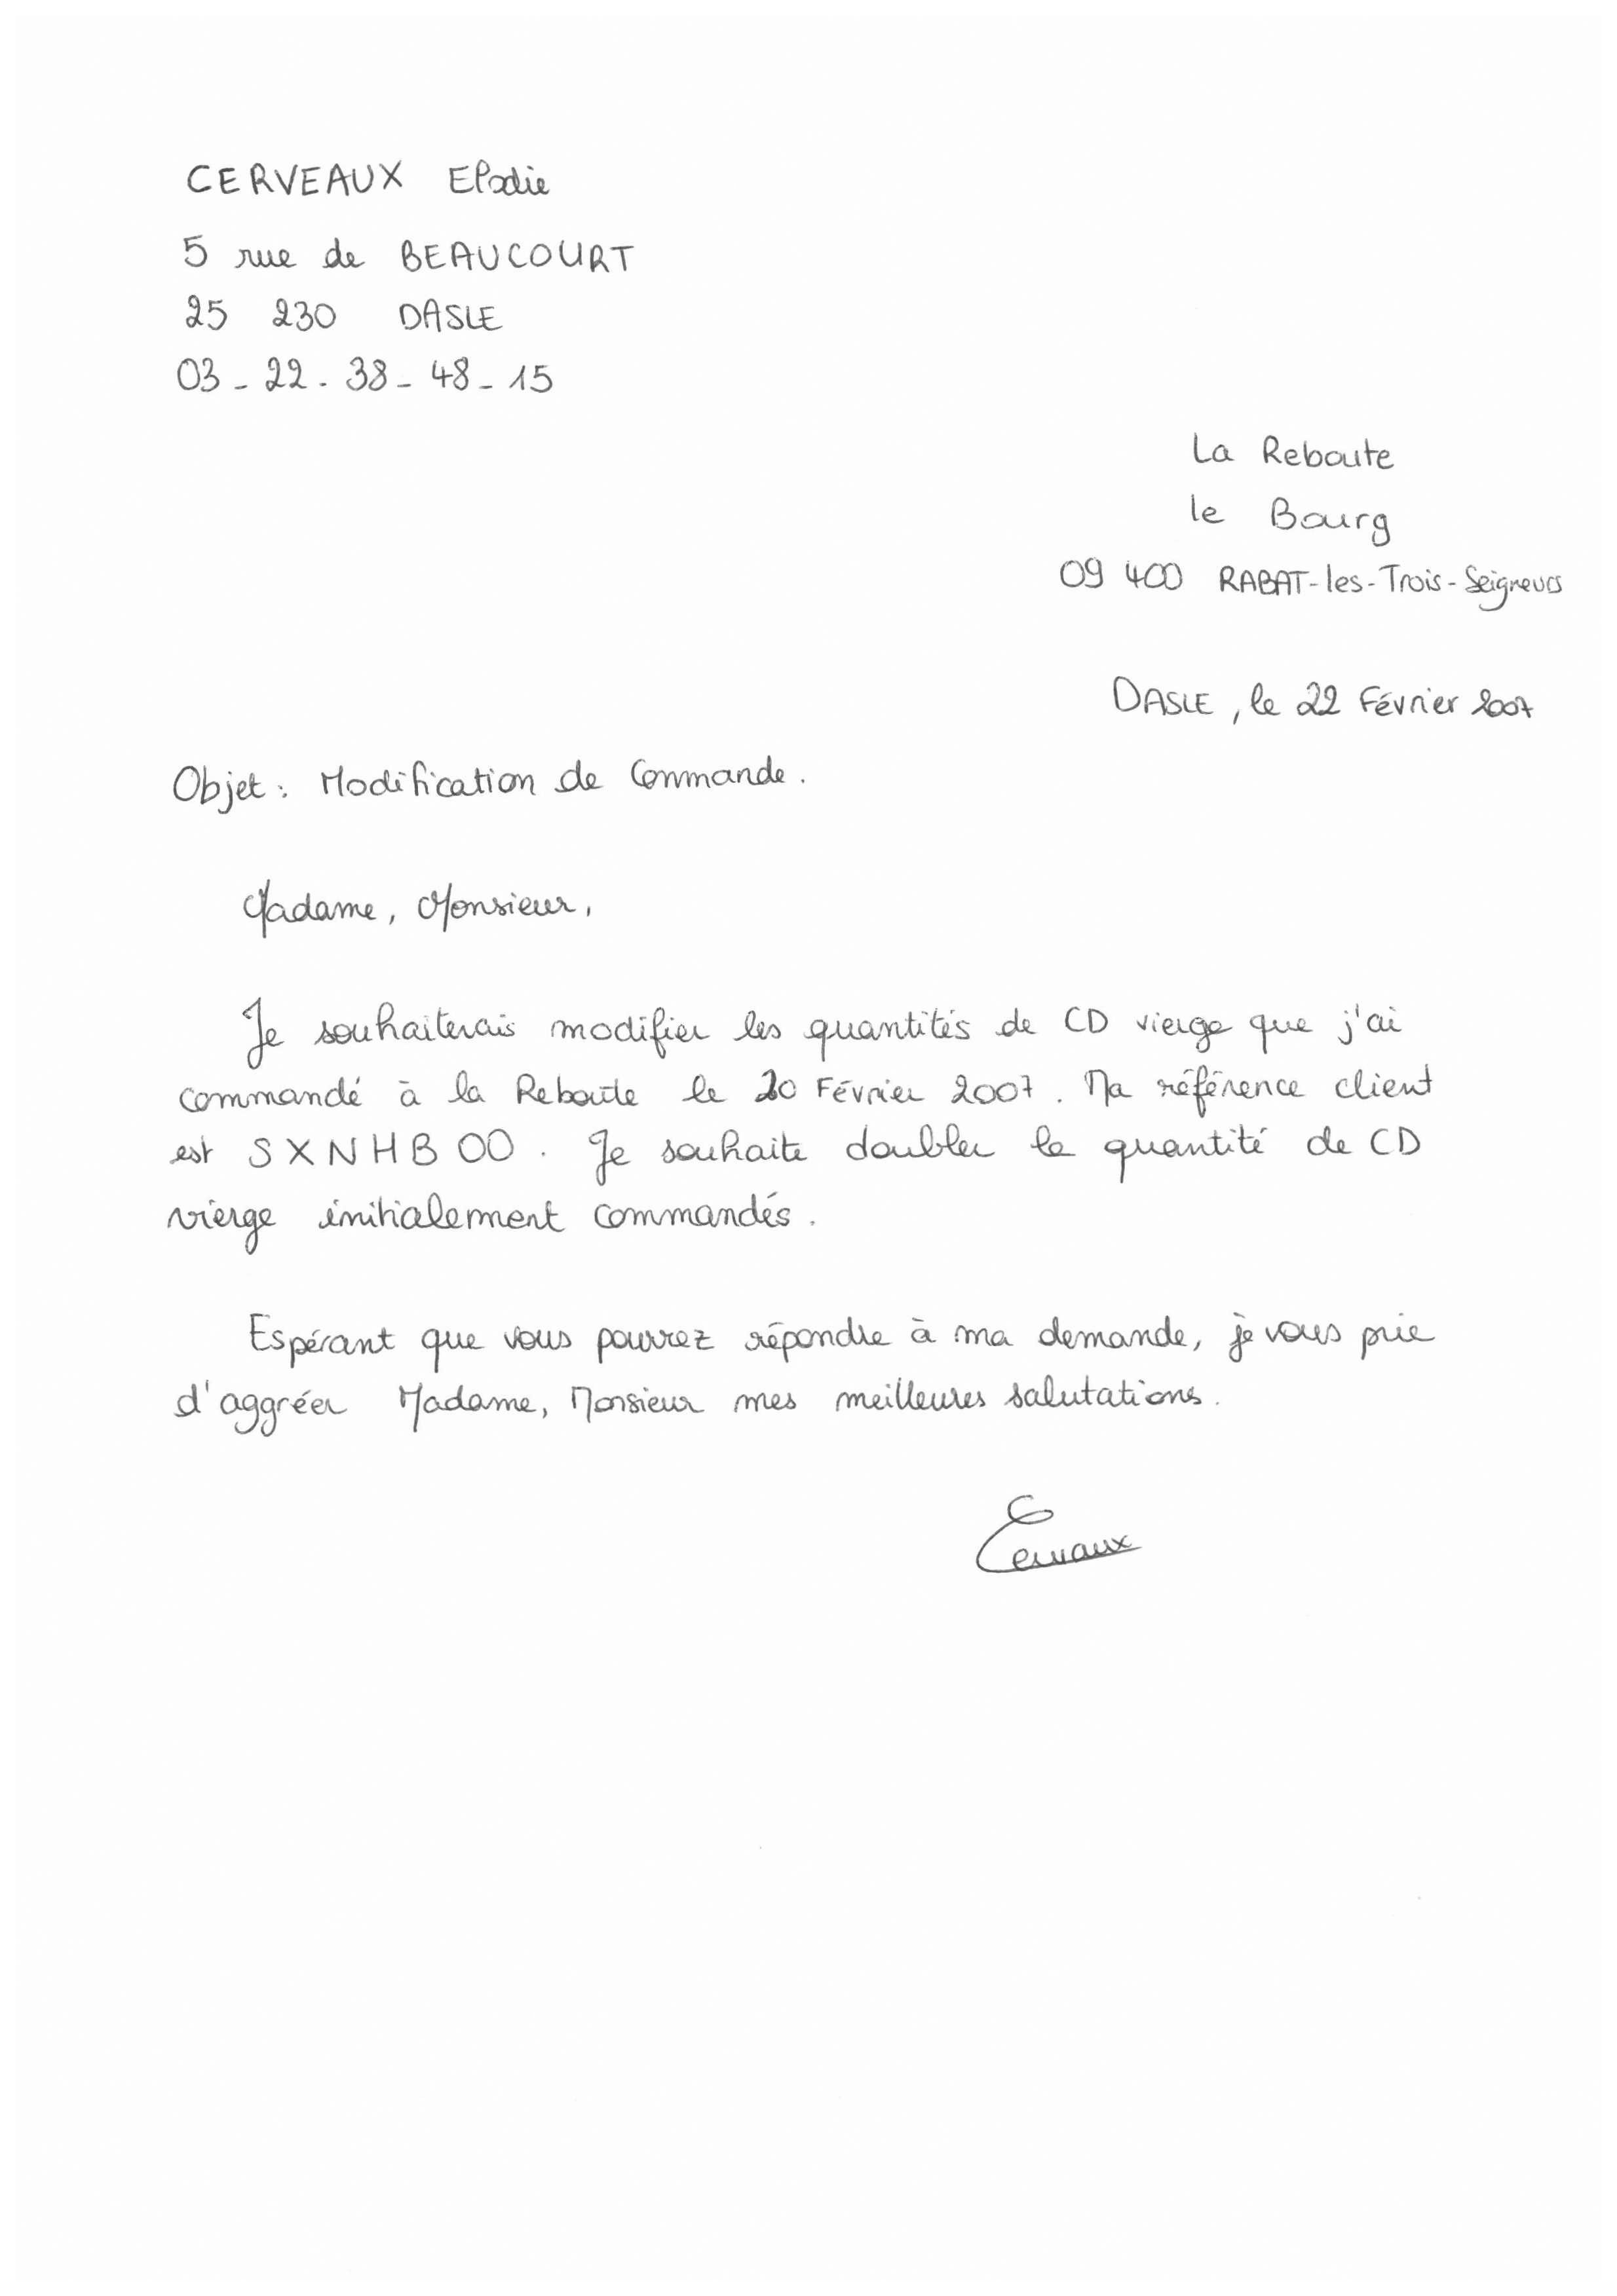 CERVEAUX Elodie
5 rue de BEAUCOURT
25 230 DASLE
03-22-38-48-15
La Reboute
le Bourg
09 400 RABAT-les-Trois-Seigneurs
DASLE, le 22 Février 2007
Objet : Modification de Commande.
Madame, Monsieur,
Je souhaiterais modifier les quantités de CD vierge que j'ai
commandé à la Reboute le 20 Février 2007. Ma référence client
est SXNHB00. Je souhaite doubler la quantité de CD
vierge initialement commandés.
Espérant que vous pourrez répondre à ma demande, je vous prie
d'aggréer Madame, Monsieur mes meilleures salutations.
Cervaux